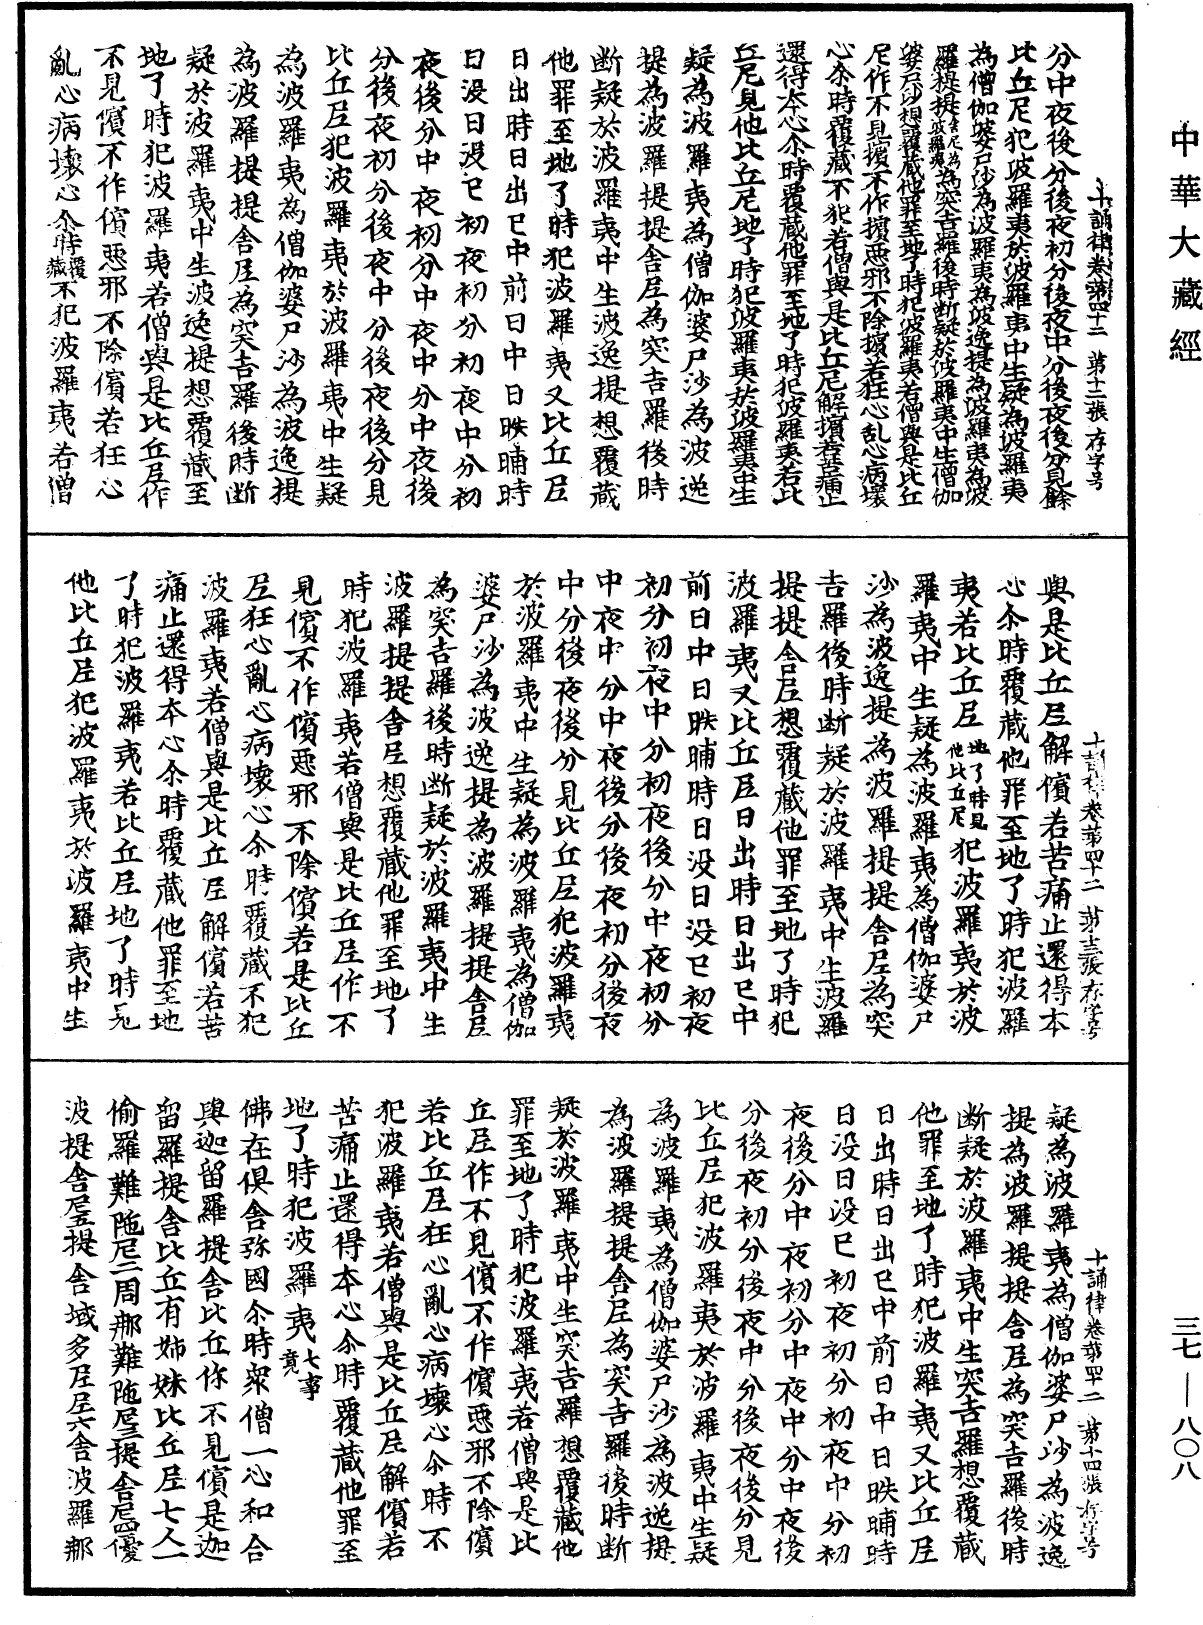 中華大藏經
十誦律卷第四十二 第十二張 存字号
分中夜後分後夜初分後夜中分後夜後分見餘
比丘尼犯波羅夷於波羅夷中生疑為波羅夷
為僧伽婆尸沙為波羅夷為波逸提為波羅夷為波
羅提提舍尼為波羅夷為突吉羅後時斷疑於波羅夷中生僧伽
婆尸沙想覆藏他罪至地了時犯波羅夷若僧與是比丘
尼作不見擯不作擯惡邪不除擯若狂心乱心病壞
心尒時覆藏不犯若僧與是比丘尼解擯若苦痛止
還得本心尒時覆藏他罪至地了時犯波羅夷若比
丘尼見他比丘尼地了時犯波羅夷於波羅夷中生
疑為波羅夷為僧伽婆尸沙為波逸
提為波羅提提舍尼為突吉羅後時
斷疑於波羅夷中生波逸提想覆藏
他罪至地了時犯波羅夷又比丘尼
日出時日出已中前日中日昳晡時
日没日没已初夜初分初夜中分初
夜後分中夜初分中夜中分中夜後
分後夜初分後夜中分後夜後分見
比丘尼犯波羅夷於波羅夷中生疑
為波羅夷為僧伽婆尸沙為波逸提
為波羅提提舍尼為突吉羅後時斷
疑於波羅夷中生波逸提想覆藏至
地了時犯波羅夷若僧與是比丘尼作
不見擯不作擯惡邪不除擯若狂心
亂心病壞心尒時覆藏不犯波羅夷若僧
十誦律卷第四十二 第十三張 存字号
與是比丘尼解擯若苦痛止還得本
心尒時覆藏他罪至地了時犯波羅
夷若比丘尼地了時見他比丘尼犯波羅夷於波
羅夷中生疑為波羅夷為僧伽婆尸
沙為波逸提為波羅提提舍尼為突
吉羅後時斷疑於波羅夷中生波羅
提提舍尼想覆藏他罪至地了時犯
波羅夷又比丘尼日出時日出已中
前日中日昳晡時日没日没已初夜
初分初夜中分初夜後分中夜初分
中夜中分中夜後分後夜初分後夜
中分後夜後分見比丘尼犯波羅夷
於波羅夷中生疑為波羅夷為僧伽
婆尸沙為波逸提為波羅提提舍尼
為突吉羅後時斷疑於波羅夷中生
波羅提提舍尼想覆藏他罪至地了
時犯波羅夷若僧與是比丘尼作不
見擯不作擯惡邪不除擯若是比丘
尼狂心亂心病壞心尒時覆藏不犯
波羅夷若僧與是比丘尼解擯若苦
痛止還得本心尒時覆藏他罪至地
了時犯波羅夷若比丘尼地了時見
他比丘尼犯波羅夷於波羅夷中生
十誦律卷第四十二 第十四張 存字号
疑為波羅夷為僧伽婆尸沙為波逸
提為波羅提提舍尼為突吉羅後時
斷疑於波羅夷中生突吉羅想覆藏
他罪至地了時犯波羅夷又比丘尼
日出時日出已中前日中日昳晡時
日没日没已初夜初分初夜中分初
夜後分中夜初分中夜中分中夜後
分後夜初分後夜中分後夜後分見
比丘尼犯波羅夷於波羅夷中生疑
為波羅夷為僧伽婆尸沙為波逸提
為波羅提提舍尼為突吉羅後時斷
疑於波羅夷中生突吉羅想覆藏他
罪至地了時犯波羅夷若僧與是比
丘尼作不見擯不作擯惡邪不除擯
若比丘尼狂心亂心病壞心尒時不
犯波羅夷若僧與是比丘尼解擯若
苦痛止還得本心尒時覆藏他罪至
地了時犯波羅夷七事竟
佛在俱舍弥國尒時眾僧一心和合
與迦留羅提舍比丘作不見擯是迦
留羅提舍比丘有姊妹比丘尼七人一
偷羅難陁尼二周那難陁尼三提舍尼四優
波提舍尼五提舍域多尼六舍波羅那
三七—八〇八